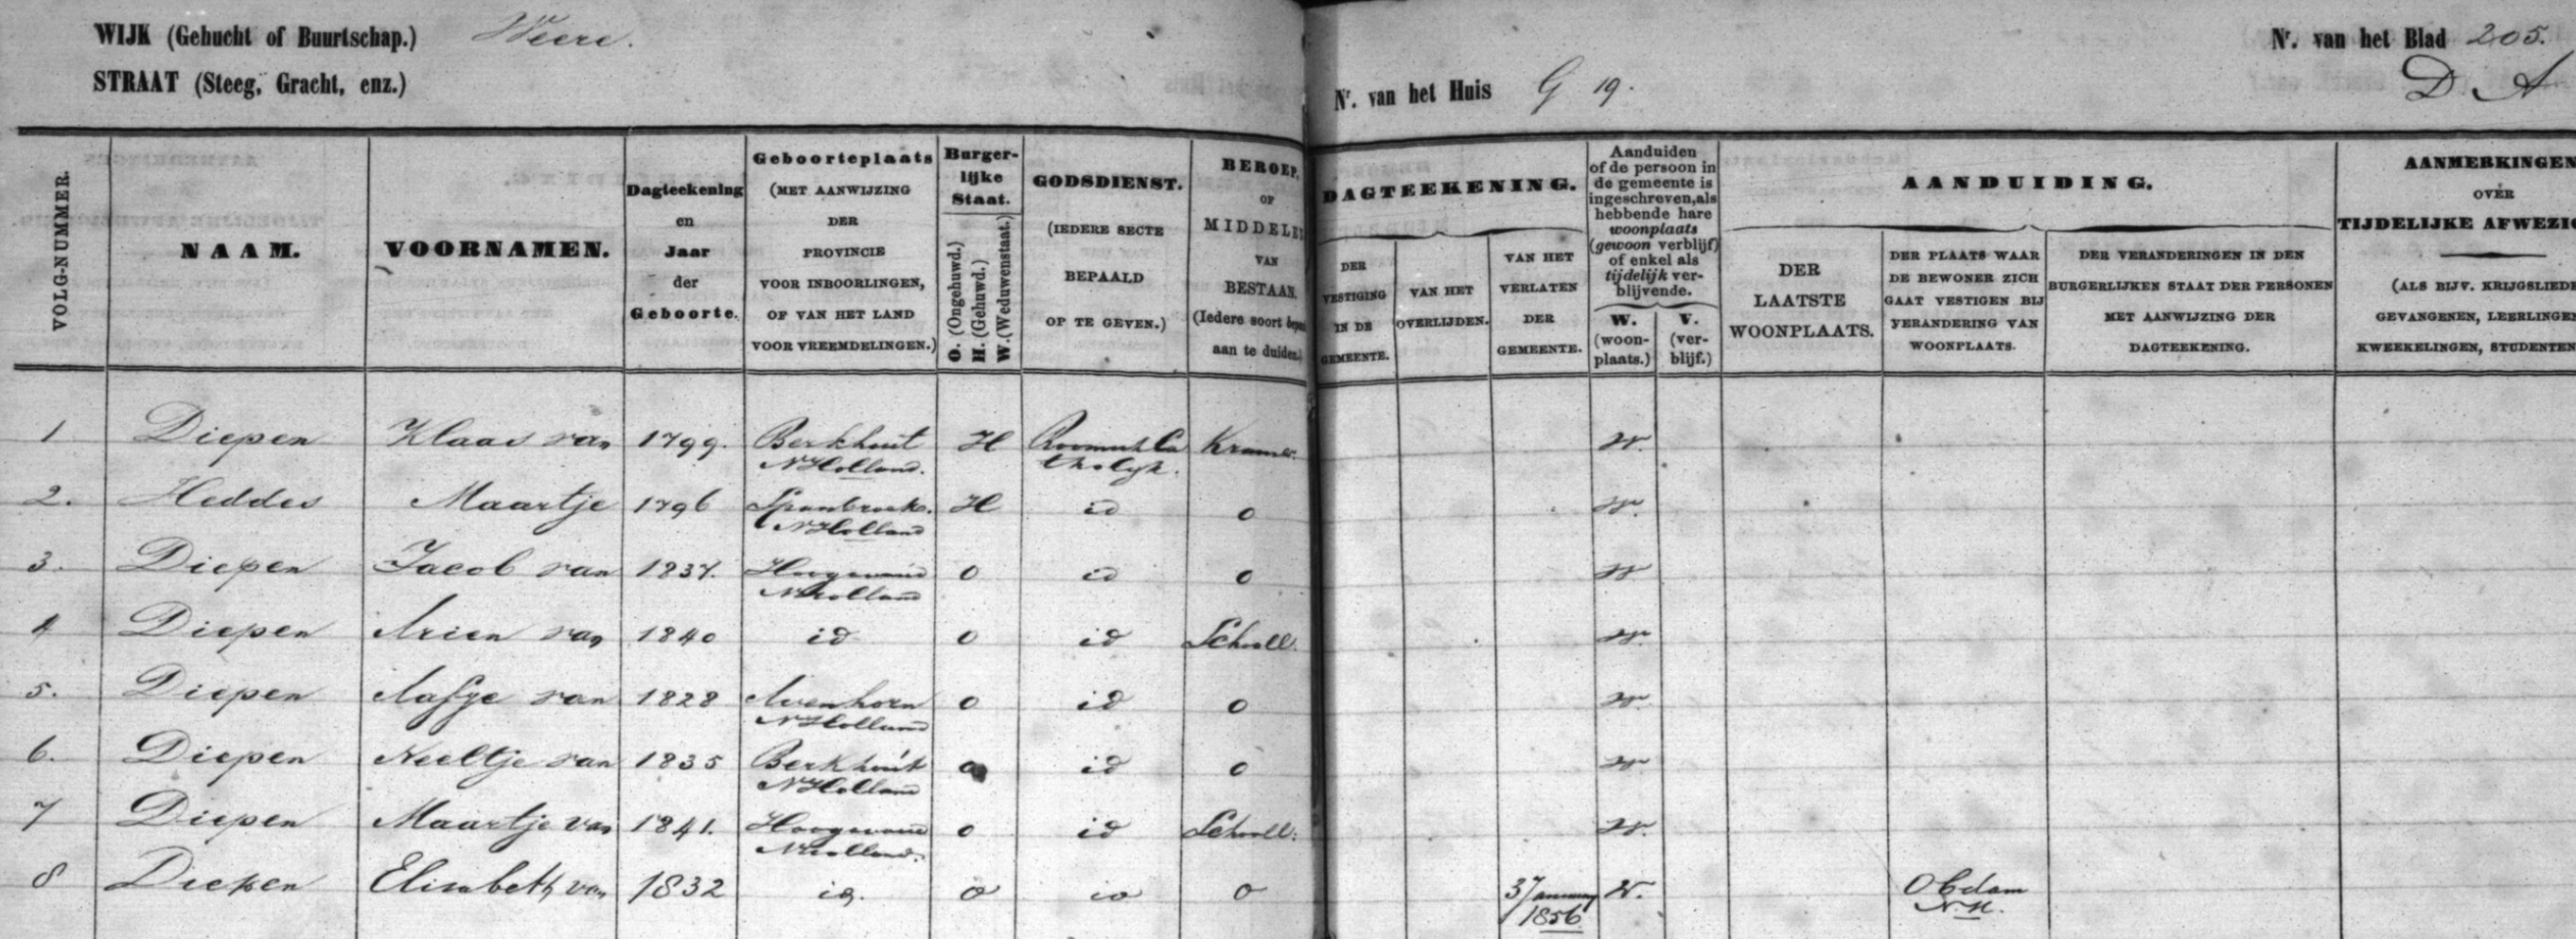 WIJK (Gehucht of Buurtschap.) Weere.
STRAAT (Steeg, Gracht, enz.)
Nr. van het Huis G 19.
Nr. van het Blad 205.
D A
VOLG-NUMMER.
NAAM.
VOORNAMEN.
Dagteekening
en
Jaar
der
Geboorte.
Geboorteplaats
(MET AANWIJZING
DER
PROVINCIE
VOOR INBOORLINGEN,
OF VAN HET LAND
VOOR VREEMDELINGEN.)
Burger-
lijke
Staat.
O. (Ongehuwd.)
H. (Gehuwd.)
W. (Weduwenstaat.)
GODSDIENST.
(IEDERE SECTE
BEPAALD
OP TE GEVEN.)
BEROEP,
OF
MIDDELE
VAN
BESTAAN.
(Iedere soort bepa
aan te duiden.)
DAGTEEKENING.
DER
VESTIGING
IN DE
GEMEENTE.
VAN HET
OVERLIJDEN.
VAN HET
VERLATEN
DER
GEMEENTE.
Aanduiden
of de persoon in
de gemeente is
ingeschreven, als
hebbende hare
woonplaats
(gewoon verblijf)
of enkel als
tijdelijk ver-
blijvende.
W.
(woon-
plaats.)
V.
(ver-
blijf.)
AANDUIDING.
DER
LAATSTE
WOONPLAATS.
DER PLAATS WAAR
DE BEWONER ZICH
GAAT VESTIGEN BIJ
VERANDERING VAN
WOONPLAATS.
DER VERANDERINGEN IN DEN
BURGERLIJKEN STAAT DER PERSONEN
MET AANWIJZING DER
DAGTEEKENING.
AANMERKINGEN
OVER
TIJDELIJKE AFWEZI
(ALS BIJV. KRIJGSLIEDE
GEVANGENEN, LEERLINGE
KWEEKELINGEN, STUDENTEN
1 Diepen Klaas van 1799. Berkhout H Roomsch Ca Kramer. W.
N Holland. tholyk.
2. Heddes Maartje 1796 Spanbroek. H id o W.
N Holland
3. Diepen Jacob van 1837. Hoogwoud o id o W
N Holland
4 Diepen Arien van 1840 id o id Schooll. W.
5. Diepen Aafje van 1828 Avenhorn o id o W.
N Holland
6. Diepen Neeltje van 1835 Berkhout o id o W.
N Holland
7 Diepen Maartje van 1841. Hoogwoud o id Schooll: W.
N Holland.
8 Diepen Elisabeth van 1832 id. o id o 3 January W. Obdam
1856 N.H.